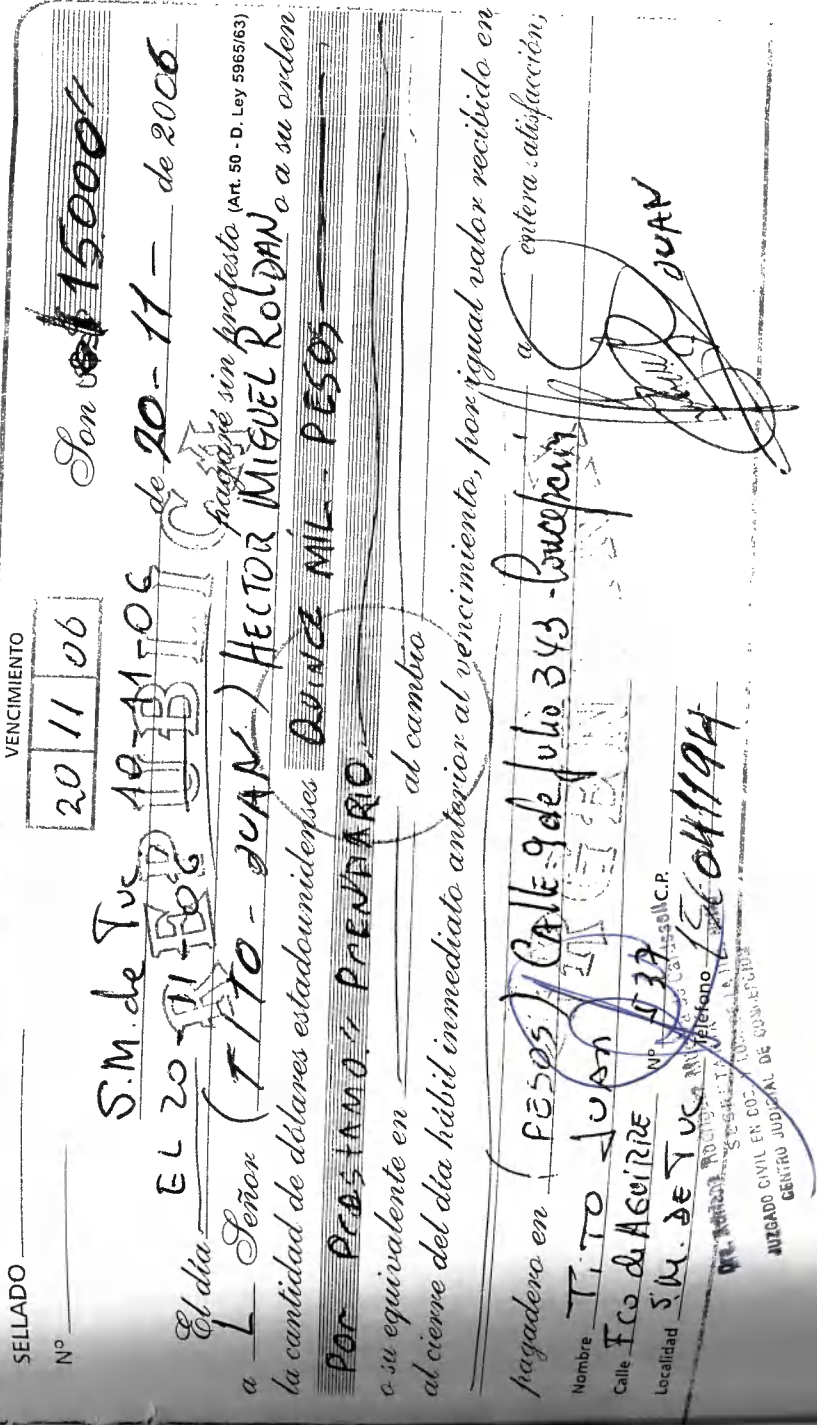 SELLADO
Nº
VENCIMIENTO
20 11 06
Son $ 15000"
S.M. de Tuc 10-11-06 de 20-11- de 2006
El día EL 20-11-06 pagaré sin protesto (Art. 50 - D. Ley 5965/63)
a L Señor (TITO - JUAN) HECTOR MIGUEL ROLDAN o a su orden
la cantidad de dólares estadounidenses QUINCE MIL - PESOS
POR PRESTAMO" PRENDARIO.
o su equivalente en al cambio
al cierre del día hábil inmediato anterior al vencimiento, por igual valor recibido en
a entera satisfacción,
pagadero en (PESOS) CAlle 9 de Julio 343 - Concepción
JUAN
Nombre TiTO JUAN
Calle Fco de AGUIRRE Nº 537
Localidad S.M. DE TUC C.P.
Teléfono 156041194
REPUBLICA
ARGENTINA
JUZGADO CIVIL EN DOC. Y LOC.
CENTRO JUDICIAL DE CONCEPCION